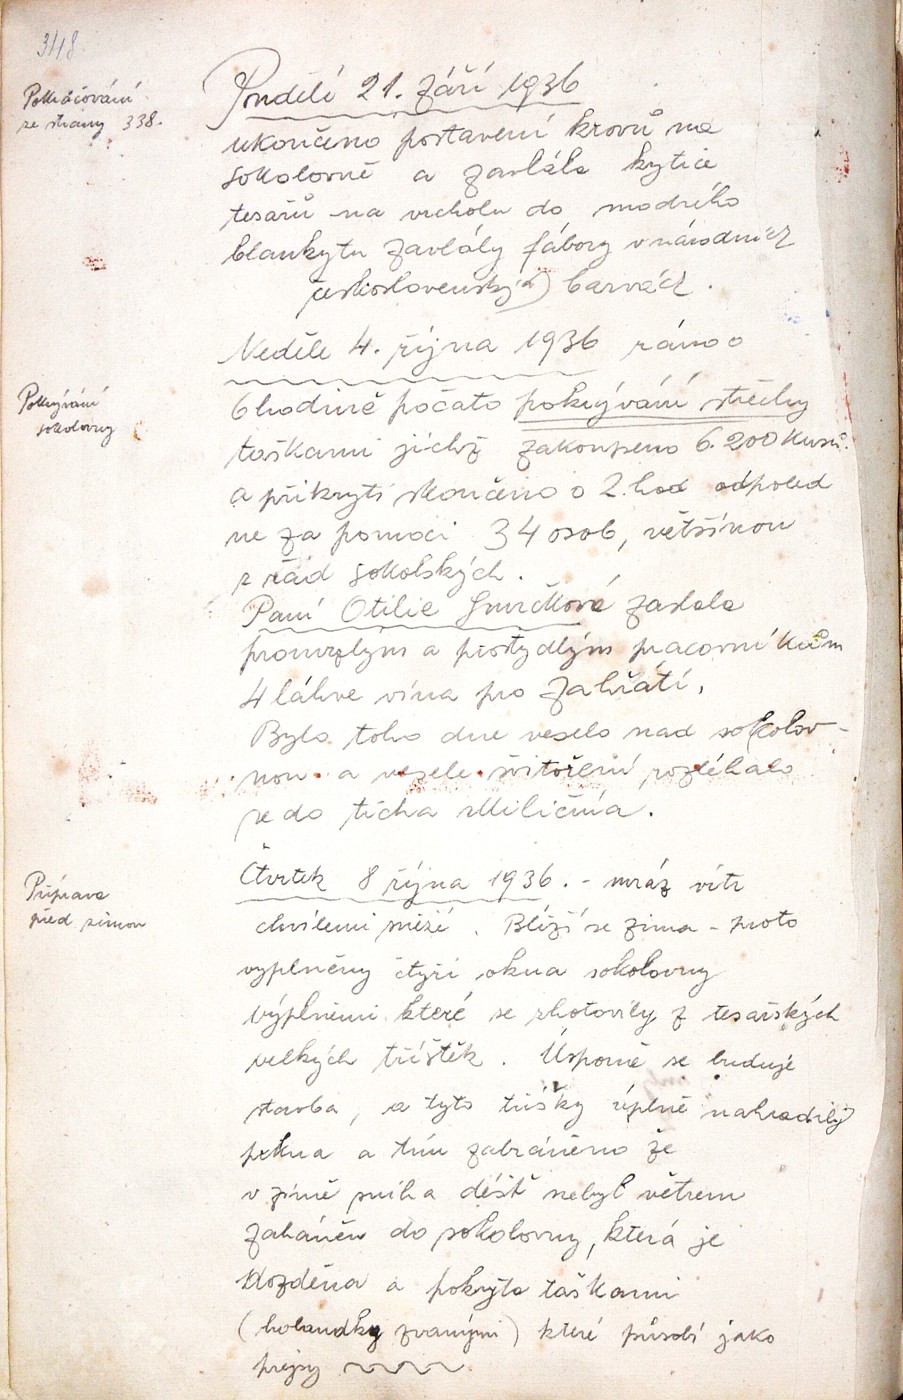 348
Pokračování
ze strany 338.
Pondělí 21. září 1936
ukončeno postavení krovů na
sokolovně a zavlála kytice
tesařů na vrcholu do modrého
blankytu zavlály fábory v národních
československých barvách.
Neděle 4. října 1936 ráno o
Pokrývání
sokolovny
6 hodině počato pokrývání střechy
taškami jichž zakoupeno 6.200 kusů.
a přikrytí skončeno o 2. hod odpoled
ne za pomoci 34 osob, většinou
z řad sokolských.
Paní Otilie Smrčková zaslala
promrzlým a prostydlým pracovníkům
4 láhve vína pro zahřátí.
Bylo toho dne veselo nad sokolov-
nou a veselé švitoření rozléhalo
se do ticha Miličína.
Příprava
před zimou
Čtvrtek 8 října 1936. - mráz vítr
chvílemi sněží. Blíží se zima - proto
vyplněny čtyři okna sokolovny
výplněmi které se zhotovily z tesařských
velkých tříštěk. Úsporně se buduje
stavba, a tyto třísky úplně nahradily
prkna a tím zabráněno že
v zimě sníh a déšť nebyl větrem
zaháněn do sokolovny, která je
vyzděna a pokryta taškami
(holandky zvanými) které působí jako
prejsy